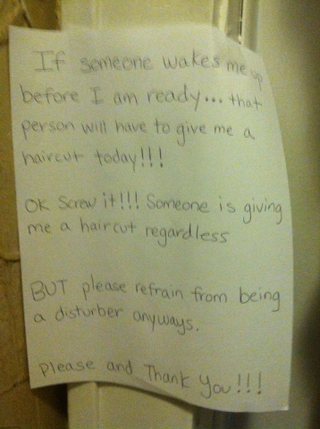 If someone wakes me up
before I am ready... that
person will have to give me a
haircut today!!!
OK screw it!!! Someone is giving
me a haircut regardless
BUT please refrain from being
a disturber anyways.
please and Thank You!!!